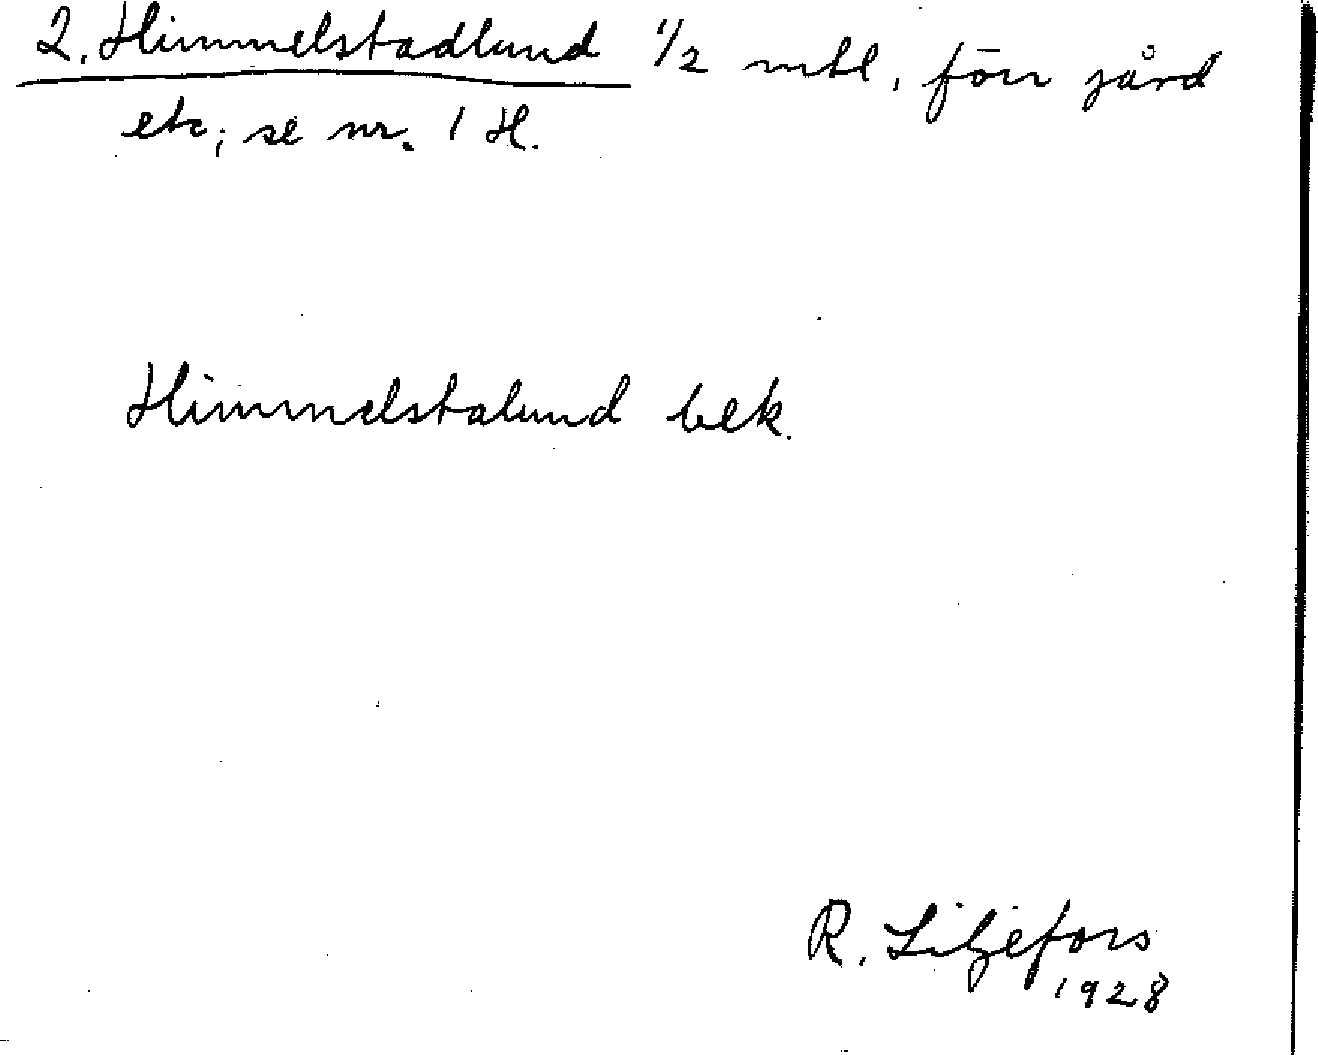 2. Himmelstadlund 1/2 mtl, förr gård
etc; se nr. 1 H.
Himmelstalund bek.
R. Liljefors
1928